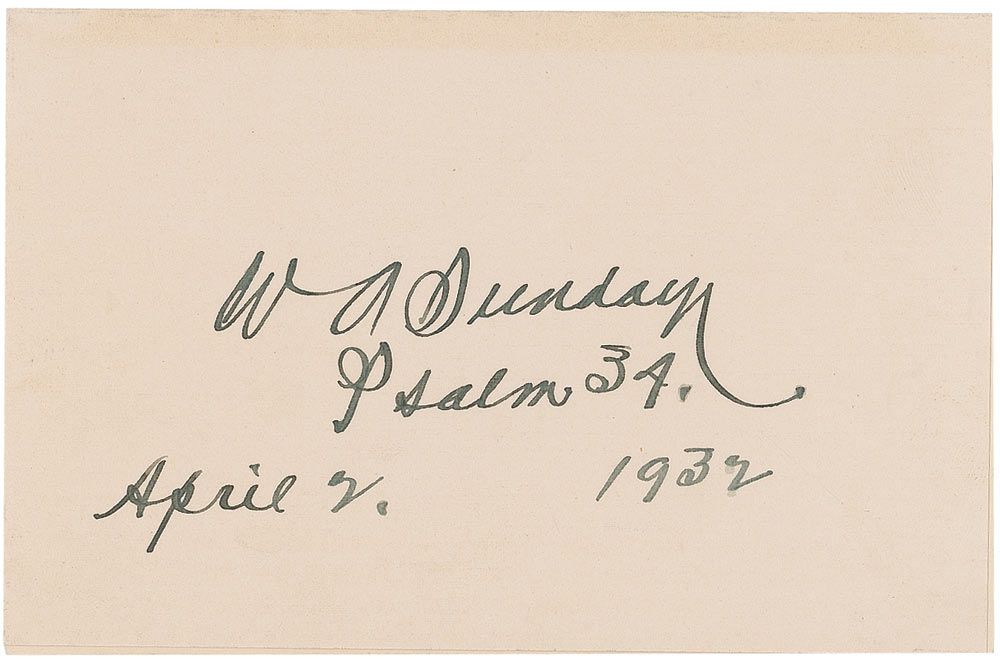 W A Sunday
Psalm 34.
April 2. 1932